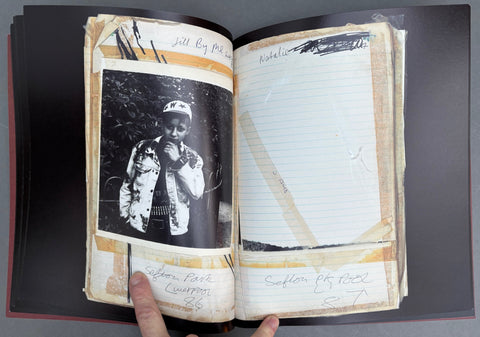 Jill By Me
W
Sefton Park
Liverpool
86
Natalie
Sefton
Pool
87